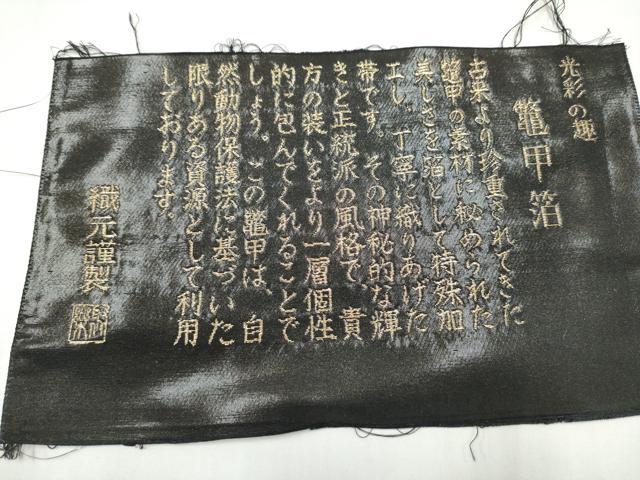 光彩の趣
鼈甲箔
古来より珍重されてきた
鼈甲の素材に秘められた
美しさを箔として特殊加
工し、丁寧に織りあげた
帯です。その神秘的な輝
きと正統派の風格で、貴
方の装いをより一層個性
的に包んでくれることで
しょう。この鼈甲は、自
然動物保護法に基づいた
限りある資源として利用
しております。
織元謹製